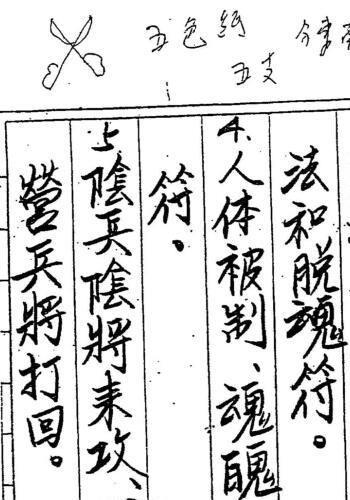 五色紙
五支
法和脱魂符。
4.人体被制、魂
符。
5.陰兵陰將来攻、
營兵將打回。